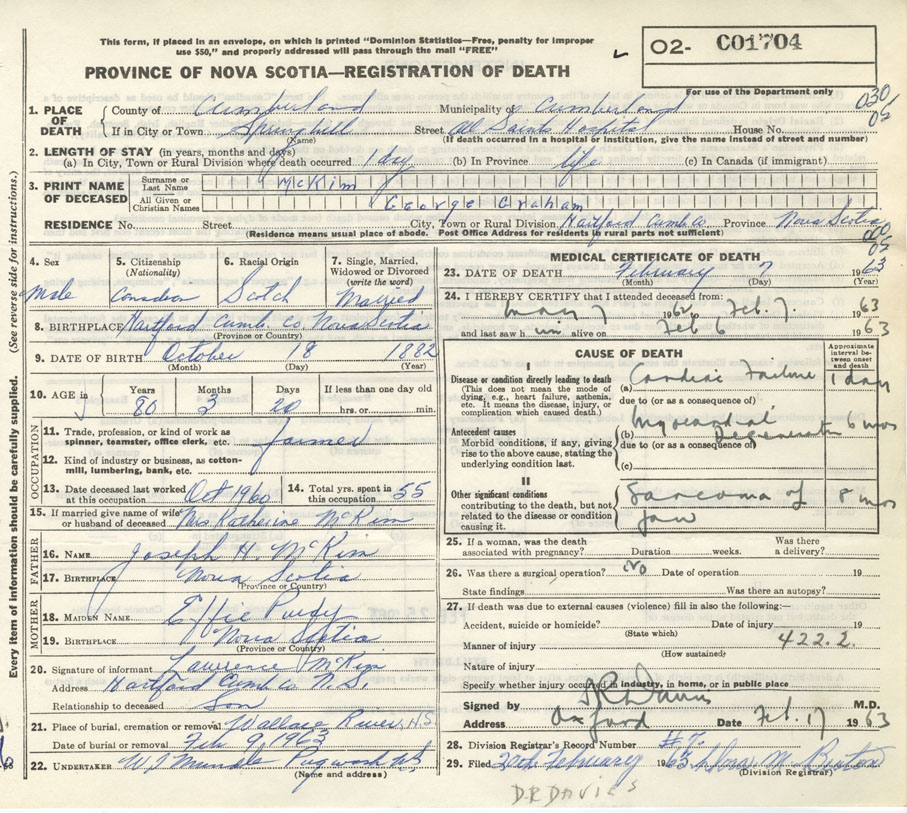 This form, if placed in an envelope, on which is printed "Dominion Statistics—Free, penalty for improper
use $50," and properly addressed will pass through the mail "FREE"
02- C01704
PROVINCE OF NOVA SCOTIA—REGISTRATION OF DEATH
For use of the Department only
030
1. PLACE OF DEATH County of Cumberland Municipality of Cumberland
If in City or Town Springhill (Name) Street All Saints Hospital House No.
(If death occurred in a hospital or institution, give the name instead of street and number)
2. LENGTH OF STAY (in years, months and days)
(a) In City, Town or Rural Division where death occurred 1 day (b) In Province life (c) In Canada (if immigrant)
3. PRINT NAME OF DECEASED Surname or Last Name McKim
All Given or Christian Names George Graham
RESIDENCE No. Street City, Town or Rural Division Hartford Cumb. Co. Province Nova Scotia
(Residence means usual place of abode. Post Office Address for residents in rural parts not sufficient)
4. Sex Male
5. Citizenship (Nationality) Canadian
6. Racial Origin Scotch
7. Single, Married, Widowed or Divorced (write the word) Married
8. BIRTHPLACE Hartford Cumb. Co. Nova Scotia
(Province or Country)
9. DATE OF BIRTH October 18 1882
(Month) (Day) (Year)
10. AGE in Years 80 Months 3 Days 20 If less than one day old hrs. or min.
OCCUPATION
11. Trade, profession, or kind of work as spinner, teamster, office clerk, etc. farmer
12. Kind of industry or business, as cotton-mill, lumbering, bank, etc.
13. Date deceased last worked at this occupation Oct 1960
14. Total yrs. spent in this occupation 55
15. If married give name of wife or husband of deceased Mrs Katherine McKim
FATHER
16. NAME Joseph H. McKim
17. BIRTHPLACE Nova Scotia
(Province or Country)
MOTHER
18. MAIDEN NAME Effie Purdy
19. BIRTHPLACE Nova Scotia
(Province or Country)
20. Signature of informant Lawrence McKim
Address Hartford Cumb. Co N.S.
Relationship to deceased Son
21. Place of burial, cremation or removal Wallace River, N.S.
Date of burial or removal Feb 9 1963
22. UNDERTAKER Pugwash N.S.
(Name and address)
MEDICAL CERTIFICATE OF DEATH
23. DATE OF DEATH February 7 1963
(Month) (Day) (Year)
24. I HEREBY CERTIFY that I attended deceased from:
May 7 1962 Feb. 7. 1963
and last saw him alive on Feb 6 1963
CAUSE OF DEATH
Approximate interval between onset and death
I
Disease or condition directly leading to death
(This does not mean the mode of dying, e.g., heart failure, asthenia, etc. It means the disease, injury, or complication which caused death.)
(a) Cardiac Failure 1 day
due to (or as a consequence of)
Antecedent causes
Morbid conditions, if any, giving rise to the above cause, stating the underlying condition last.
(b) Myocardial Degeneration 6 mos
due to (or as a consequence of)
(c)
II
Other significant conditions contributing to the death, but not related to the disease or condition causing it.
Sarcoma of jaw 8 mos
25. If a woman, was the death associated with pregnancy? Duration weeks. Was there a delivery?
26. Was there a surgical operation? No Date of operation 19
State findings Was there an autopsy?
27. If death was due to external causes (violence) fill in also the following:—
Accident, suicide or homicide? Date of injury 19
(State which)
Manner of injury 422.2
(How sustained)
Nature of injury
Specify whether injury occurred in industry, in home, or in public place
Signed by M.D.
Address Oxford Date Feb. 17 1963
28. Division Registrar's Record Number #7.
29. Filed February 1963
(Division Registrar)
DR DAVIES
Every item of information should be carefully supplied. (See reverse side for instructions.)